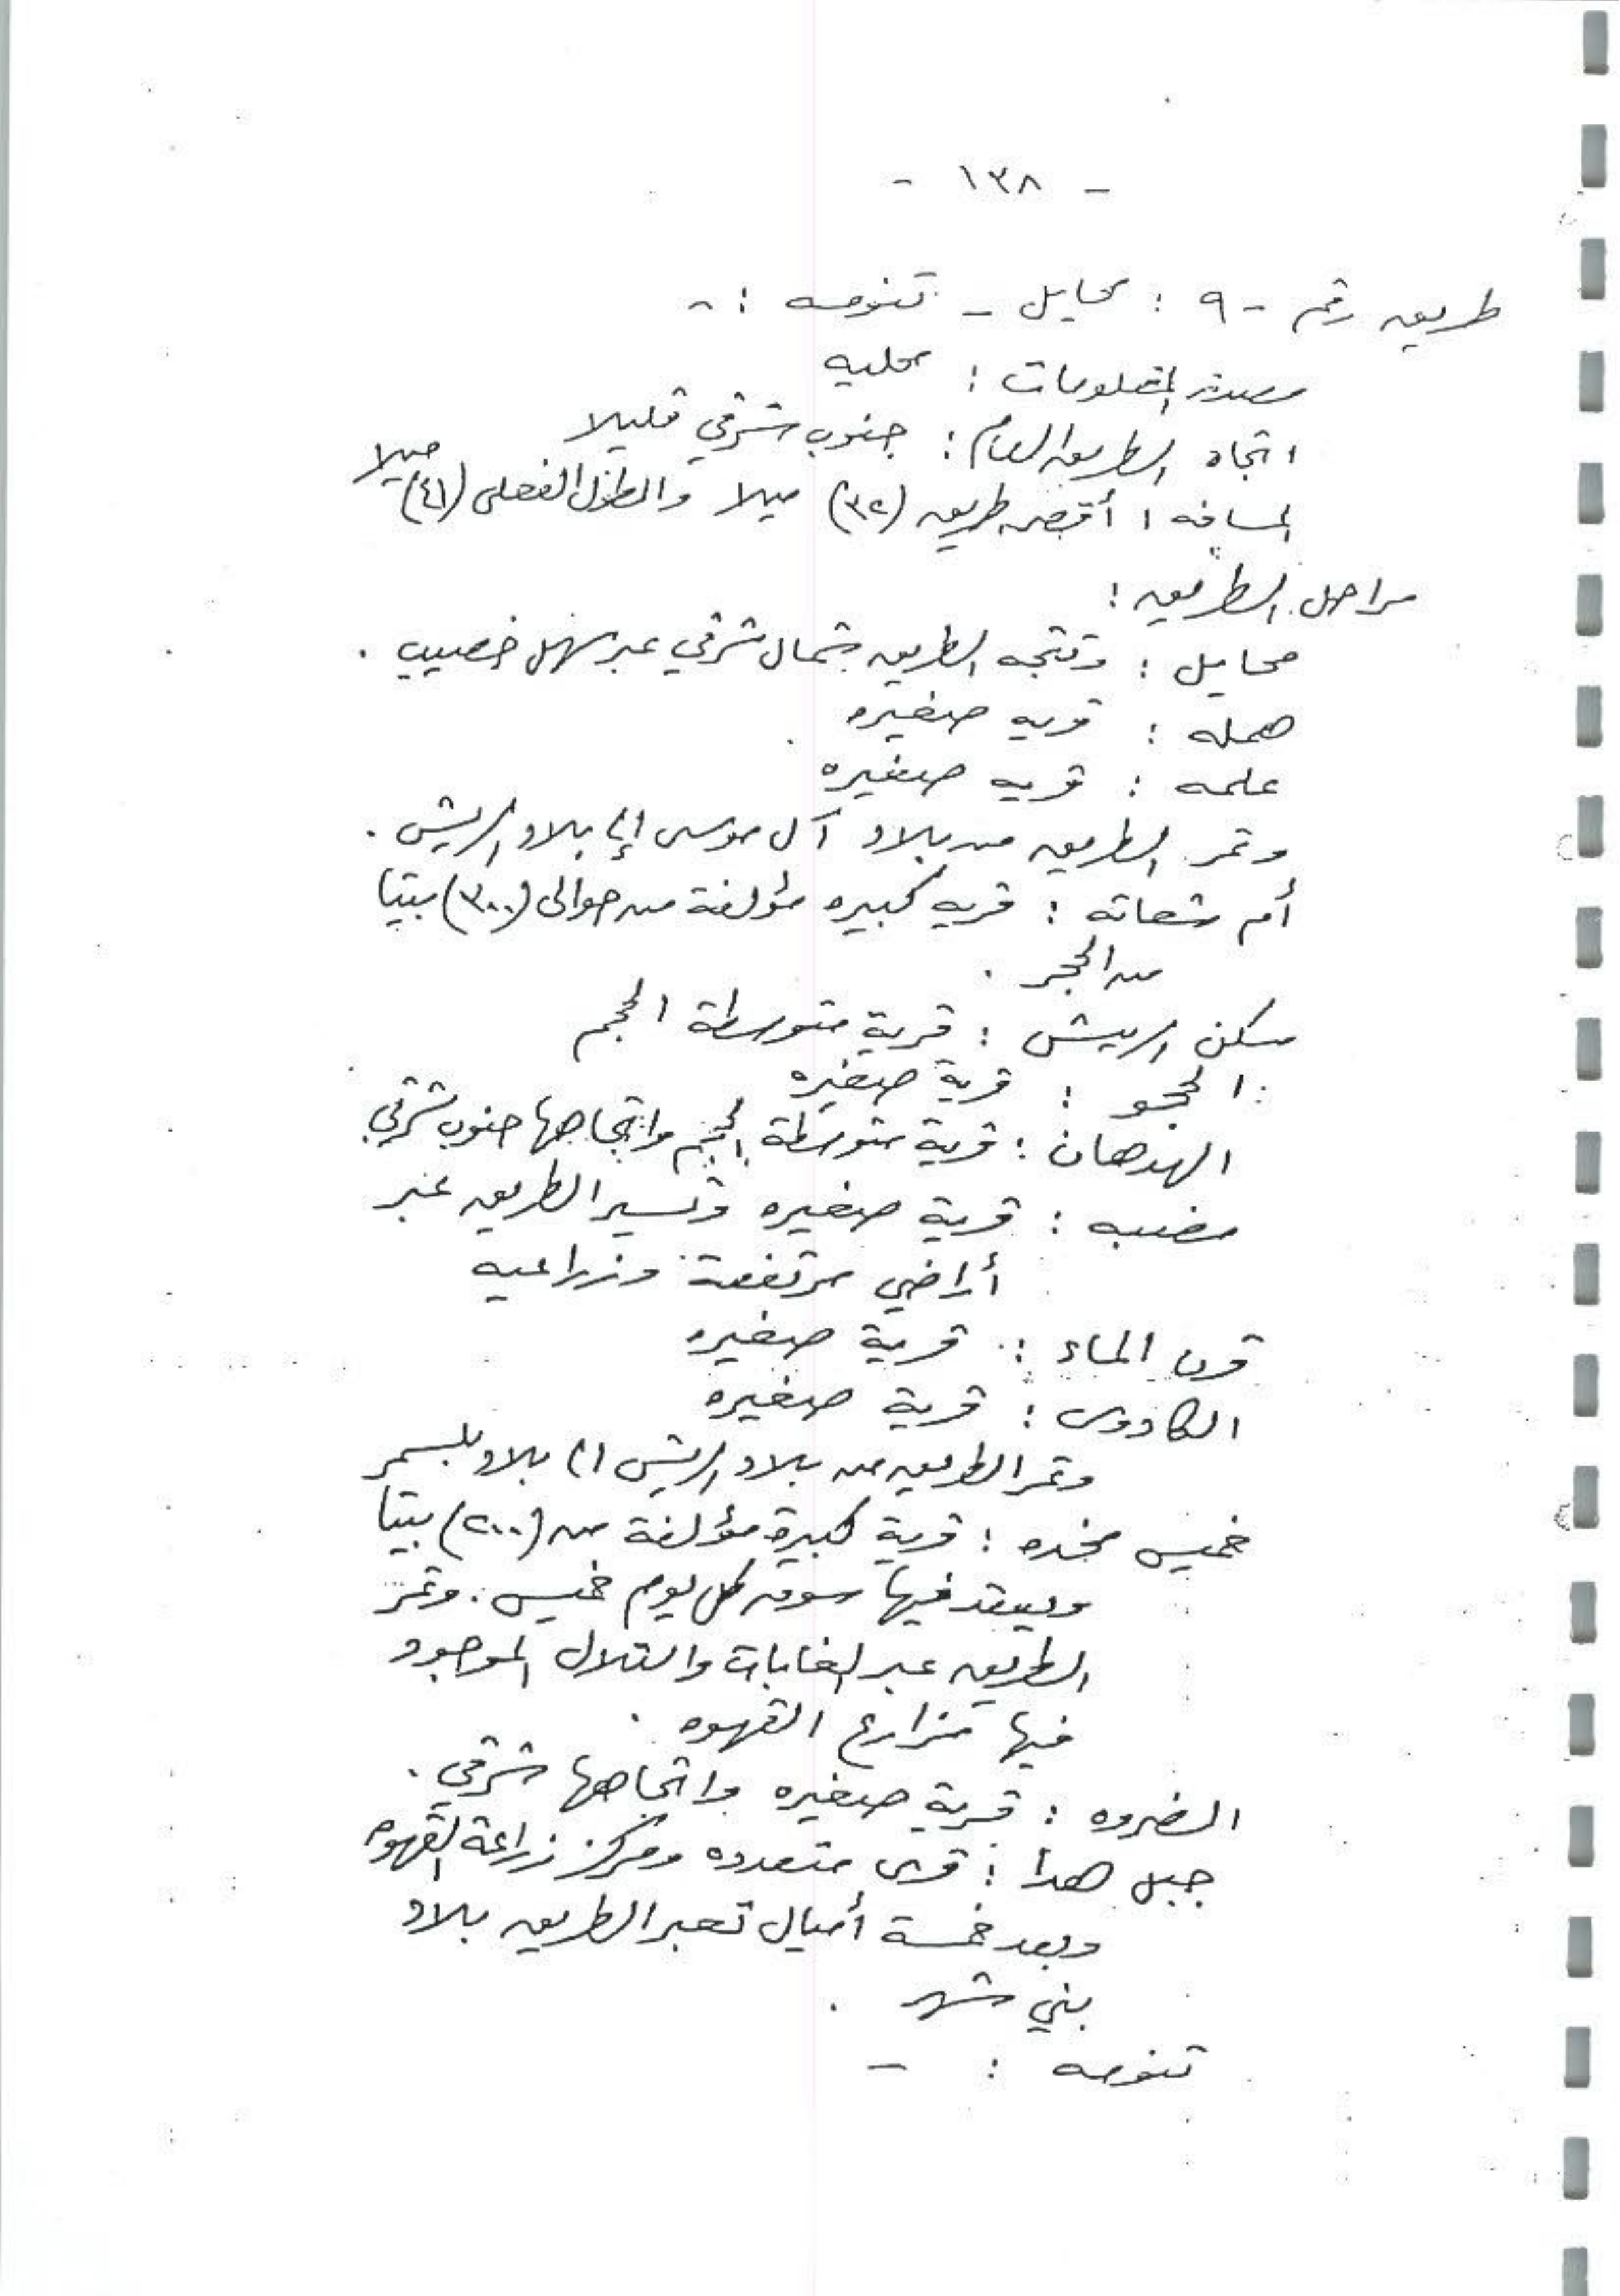 - ١٣٨ -
طريق رقم - ٩ : محايل - تنومه : -
مصدر المعلومات : محليه
اتجاه الطريق العام : جنوب شرقي قليلا
المسافه : أقصر طريق (٣٢) ميلا والطول الفعلى (٤١) ميلا
مراحل الطريق :
محايل : وتتجه الطريق شمال شرقي عبر سهل خصيب .
همله : قريه صغيره
علمه : قريه صغيره
وتمر الطريق من بلاد آل موسى إلى بلاد الريش .
أم شعاته : قريه كبيره مؤلفة من حوالى (٣٠٠) بيتا
من الحجر .
مسكن الريش : قرية متوسطة الحجم
الحجو : قرية صغيره
الهدهان : قرية متوسطة الحجم واتجاهها جنوب شرقي
مضبه : قرية صغيره وتسير الطريق عبر
أراضي مرتفعة وزراعيه
قرن الماء : قرية صغيره
الكادوى : قرية صغيره
وتمر الطريق من بلاد الريش الى بلاد بلسمر
خميس مخده : قرية كبيرة مؤلفة من (٢٠٠) بيتا
ويعقد فيها سوق كل يوم خميس . وتمر
الطريق عبر الغابات والتلال الموجود
فيها مزارع القهوه .
الضروه : قرية صغيره واتجاهها شرقي .
جبل هدا : قرى متعدده ومركز زراعة القهوه
وبعد خمسة أميال تعبر الطريق بلاد
بني شهر .
تنومه : -